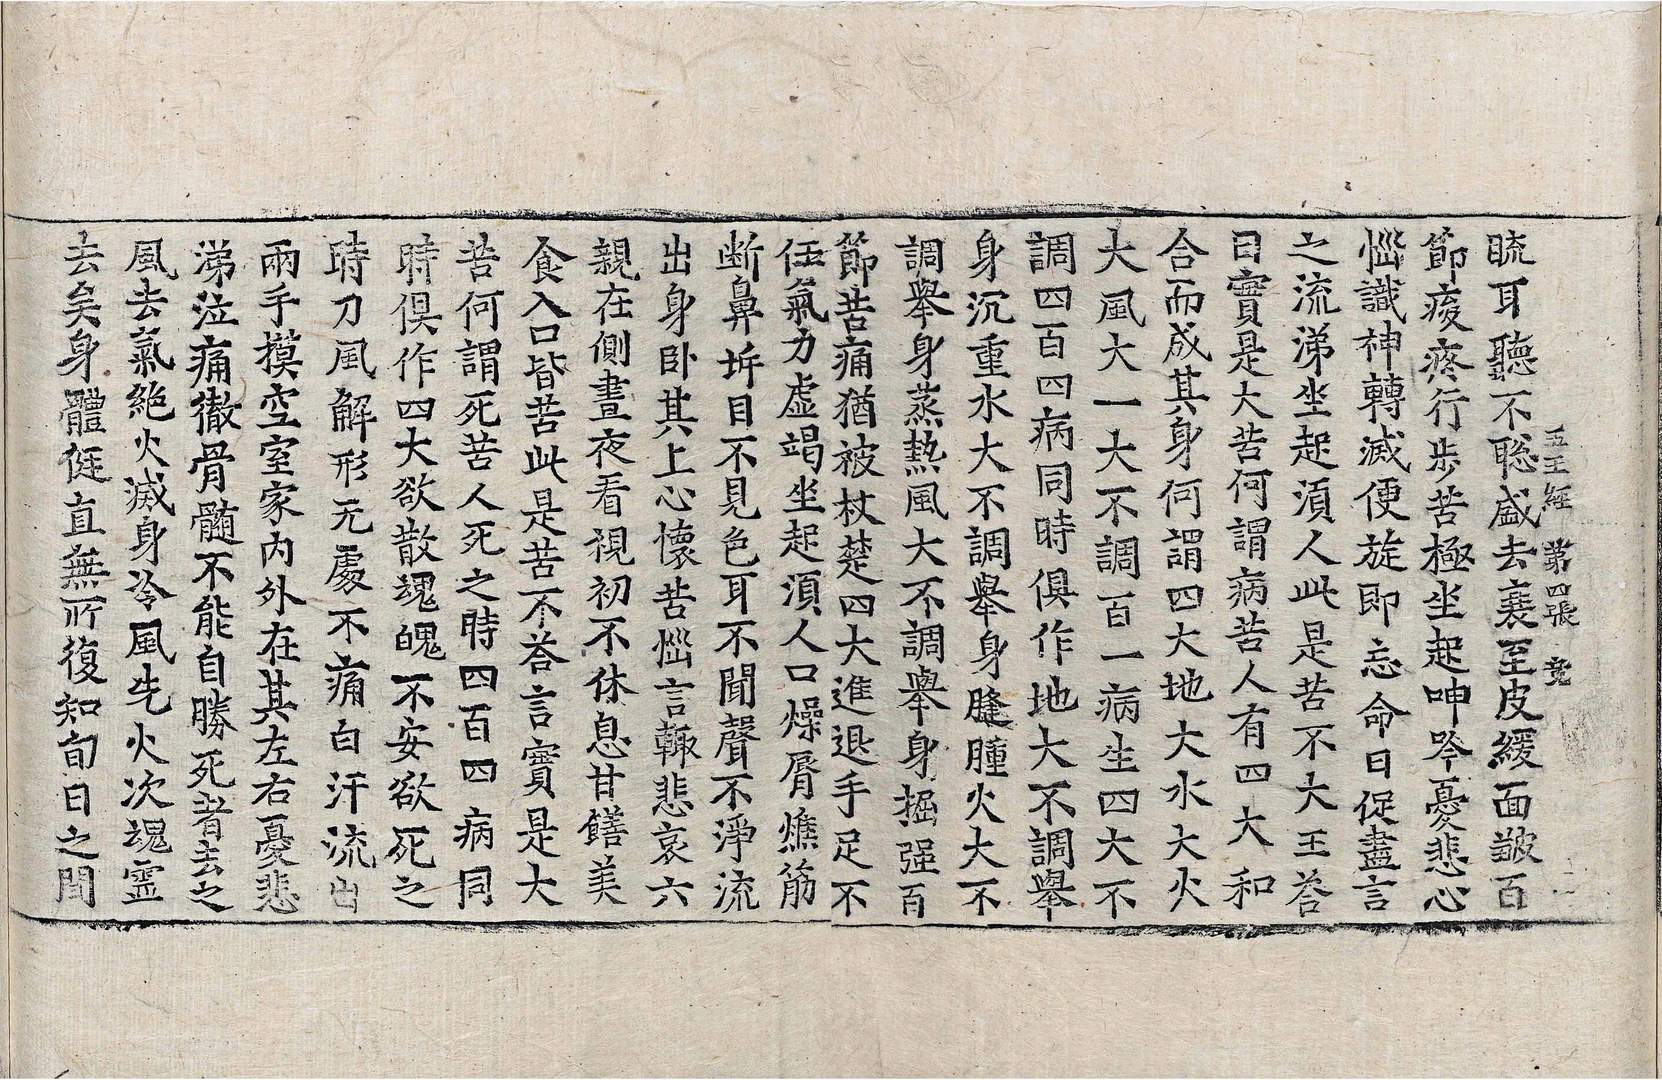 五王經 第四張 竟
䀮耳聽不聡盛去衰至皮緩面皺百
節痠疼行步苦極坐起呻吟憂悲心
惱識神轉減便旋即忘命日促盡言
之流涕坐起須人此是苦不大王荅
曰實是大苦何謂病苦人有四大和
合而成其身何謂四大地大水大火
大風大一大不調百一病生四大不
調四百四病同時俱作地大不調舉
身沉重水大不調舉身膖腫火大不
調舉身蒸熱風大不調舉身掘强百
節苦痛猶被杖楚四大進退手足不
任氣力虛竭坐起須人口燥脣燋筋
断鼻坼目不見色耳不聞聲不淨流
出身卧其上心懷苦惱言輙悲哀六
親在側晝夜看視初不休息甘饍美
食入口皆苦此是苦不荅言實是大
苦何謂死苦人死之時四百四病同
時俱作四大欲散魂魄不安欲死之
時刀風解形无處不痛白汗流出
兩手摸空室家內外在其左右憂悲
涕泣痛徹骨髓不能自勝死者去之
風去氣絶火滅身冷風先火次魂靈
去矣身體侹直無所復知旬日之間